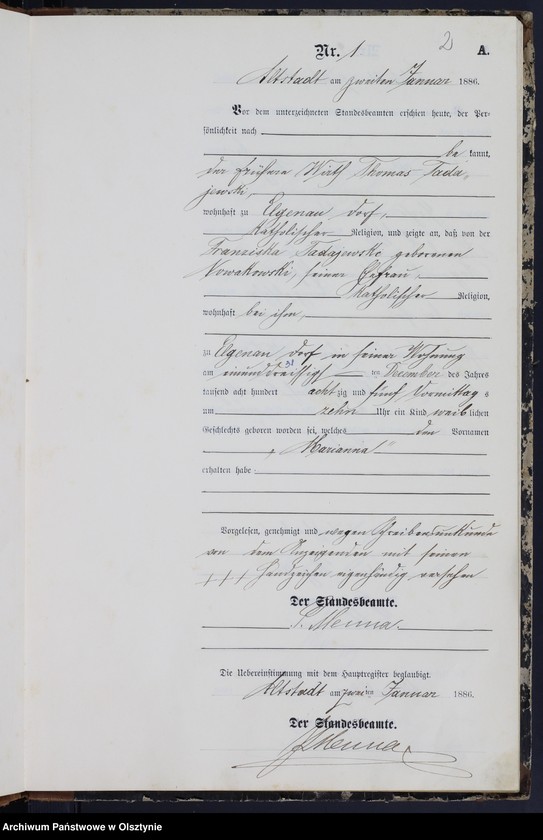 Nr. 1
2
A.
Altstadt am zweiten Januar 1886.
Vor dem unterzeichneten Standesbeamten erschien heute, der Per-
sönlichkeit nach
be kannt,
der frühere Wirth Thomas Tada-
jewski,
wohnhaft zu Elgenau Dorf,
katholischer Religion, und zeigte an, daß von der
Franziska Tadajewski geborenen
Nowakowski, seiner Ehefrau,
katholischer Religion,
wohnhaft bei ihm,
zu Elgenau Dorf in seiner Wohnung
am einunddreissigsten 31 ten December des Jahres
tausend acht hundert achtzig und fünf Vormittags
um zehn Uhr ein Kind weiblichen
Geschlechts geboren worden sei, welches den Vornamen
„Marianna“
erhalten habe.
Vorgelesen, genehmigt und wegen Schreibensunkunde
von dem Anzeigenden mit seinen
+++ Handzeichen eigenhändig versehen
Der Standesbeamte.
Menna.
Die Uebereinstimmung mit dem Hauptregister beglaubigt.
Altstadt am zweiten Januar 1886.
Der Standesbeamte.
Menna.
Archiwum Państwowe w Olsztynie